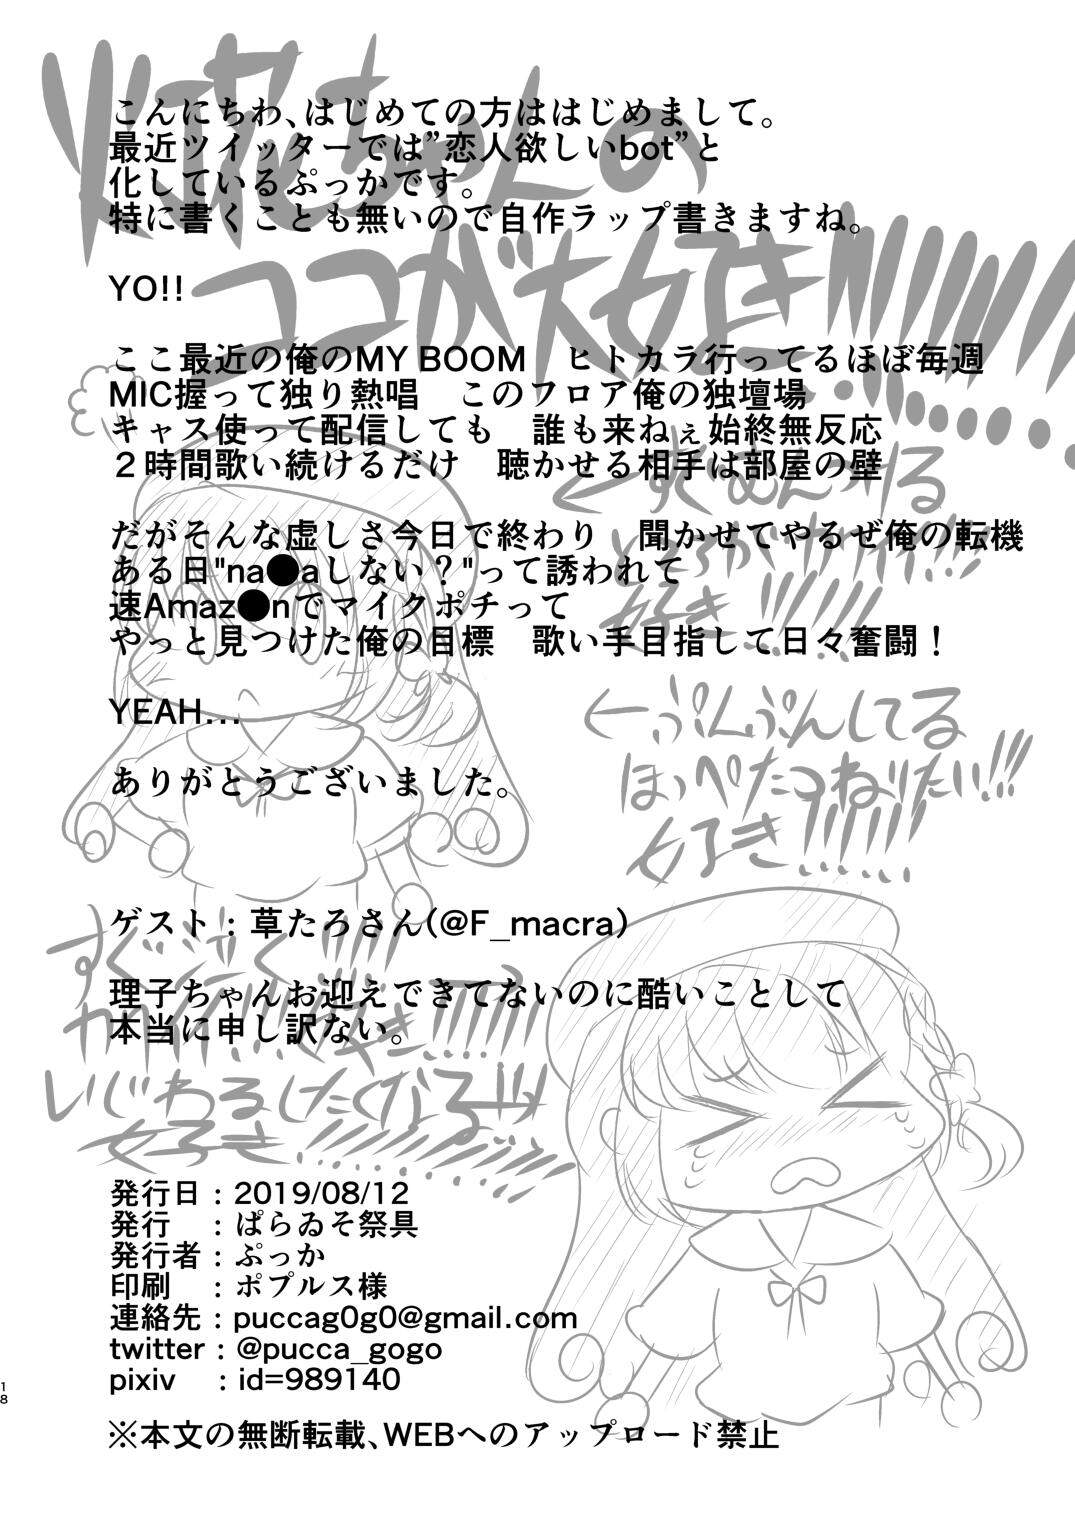 火花ちゃんの
ココが大好き!!!!!!!!
こんにちわ、はじめての方ははじめまして。
最近ツイッターでは”恋人欲しいbot”と
化しているぷっかです。
特に書くことも無いので自作ラップ書きますね。
YO!!
ここ最近の俺のMY BOOM　ヒトカラ行ってるほぼ毎週
MIC握って独り熱唱　このフロア俺の独壇場
キャス使って配信しても　誰も来ねぇ始終無反応
２時間歌い続けるだけ　聴かせる相手は部屋の壁
だがそんな虚しさ今日で終わり　聞かせてやるぜ俺の転機
ある日"na●aしない？"って誘われて
速Amaz●nでマイクポチって
やっと見つけた俺の目標　歌い手目指して日々奮闘！
YEAH...
ありがとうございました。
←すぐむくれる
ところがカワイイ!!!
好き!!!!!!
←ぷんぷんしてる
ほっぺたつねりたい!!!
好き!!!!!!
ゲスト：草たろさん(@F_macra)
理子ちゃんお迎えできてないのに酷いことして
本当に申し訳ない。
すぐ泣く!!!!
いじわるしたくなるッッ
好き
発行日：2019/08/12
発行　：ぱらゐそ祭具
発行者：ぷっか
印刷　：ポプルス様
連絡先：puccag0g0@gmail.com
twitter：@pucca_gogo
pixiv　：id=989140
※本文の無断転載、WEBへのアップロード禁止
18